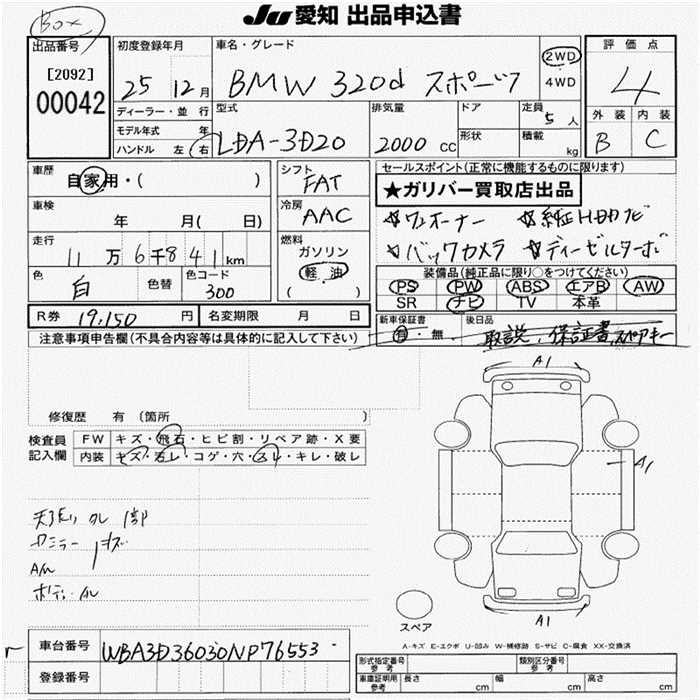 BOX
JU 愛知 出品申込書
出品番号
[2092]
00042
初度登録年月
25 12月
車名・グレード
BMW 320d スポーツ
2WD
4WD
評価点
4
ディーラー・並行
モデル年式 年
ハンドル 左 右
型式
LDA-3D20
排気量
2000 CC
ドア
形状
定員
5人
積載
kg
外装 内装
B C
車歴
自家用・( )
車検
年 月( 日)
走行
11万6千841km
色
白
色替
色コード
300
シフト
FAT
冷房
AAC
燃料
ガソリン
軽・油
( )
セールスポイント(正常に機能するものに限ります)
★ガリバー買取店出品
☆ワンオーナー ☆純正HDDナビ
☆バックカメラ ☆ディーゼルターボ
装備品(純正品に限り○をつけてください)
PS PW ABS エアB AW
SR ナビ TV 本革
R券 19,150 円
名変期限 月 日
新車保証書
有・無
後日品
取説、保証書、スペアキー
注意事項申告欄(不具合内容等は具体的に記入して下さい)
修復歴 有(箇所 )
検査員
記入欄
FW キズ・飛石・ヒビ割・リペア跡・X要
内装 キズ・汚レ・コゲ・穴・スレ・キレ・破レ
天張り クレ 1部
A1
A1
A1
スペア
A-キズ E-エクボ U-凹み W-補修跡 S-サビ C-腐食 XX-交換済
車台番号
WBA3D36030NP76553
登録番号
形式指定番号
参考
類別区分番号
参考
車庫証明用
参考
長さ cm
幅 cm
高さ cm